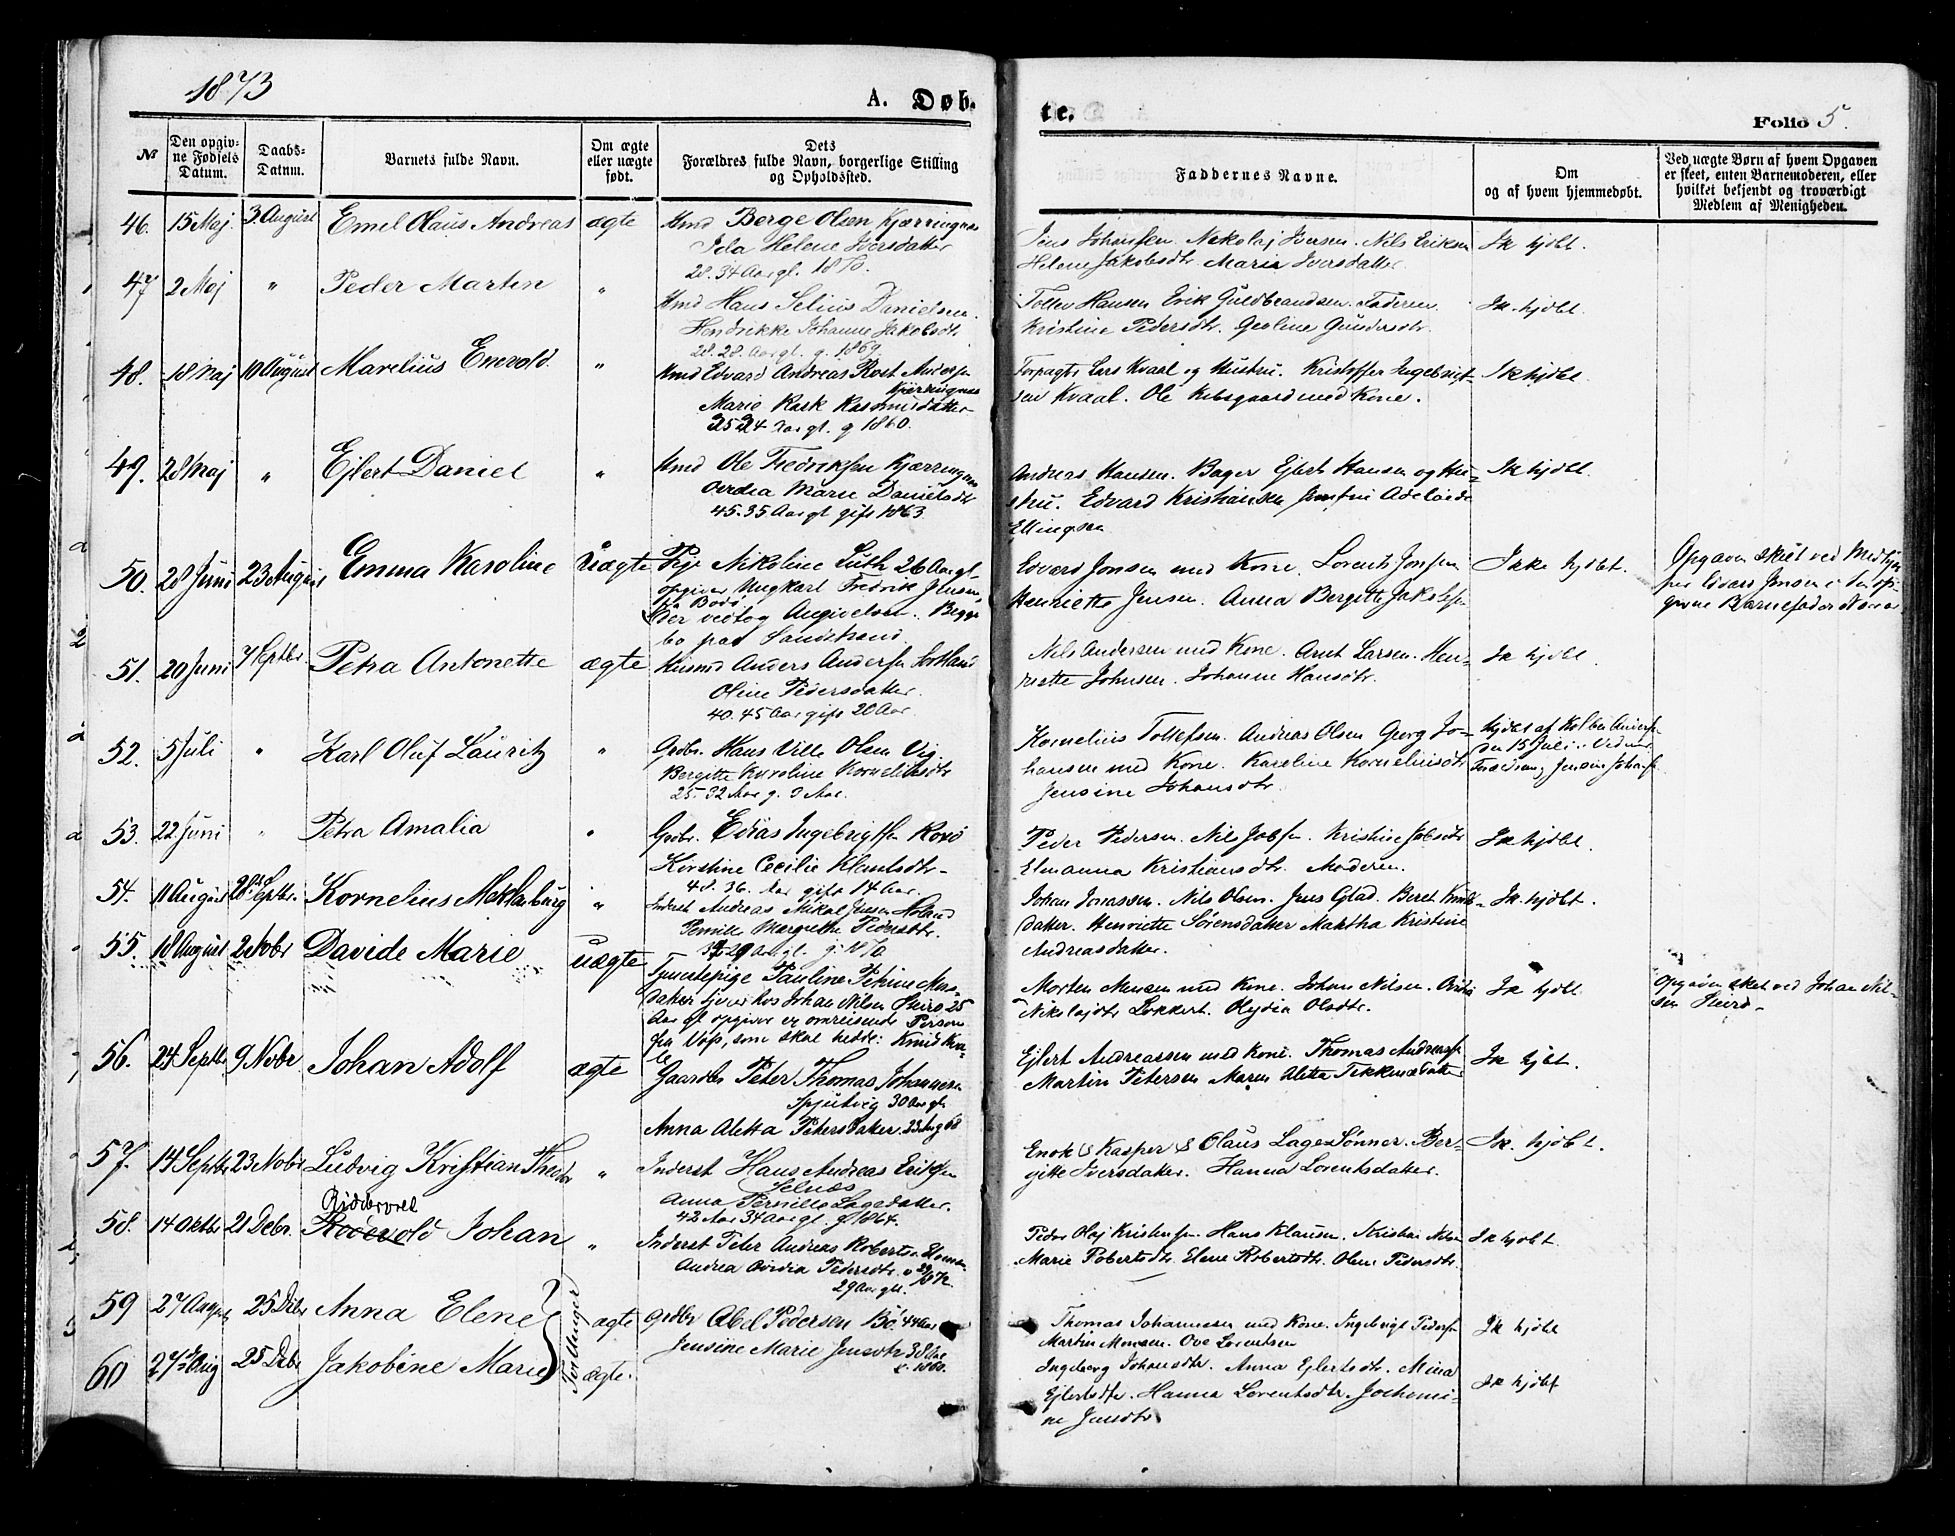 1873
A. Døb-
te.
Folio 5.
№
Den opgiv-
ne Fødsels
Datum.
Daabs-
Datum.
Barnets fulde Navn.
Om ægte
eller uægte
født.
Dets
Forældres fulde Navn, borgerlige Stilling
og Opholdssted.
Faddernes Navne.
Om
og af hvem hjemmedøbt.
Ved uægte Børn af hvem Opgaven
er skeet, enten Barnemoderen, eller
hvilket bekjendt og troværdigt
Medlem af Menigheden.
46. 15 Maj 3 August Emel Olaus Andreas ægte
Hmd Berge Olsen Kjærringnæs
Ida Helene Iversdatter
28. 34 Aar gl. 1870.
Jens Johansen. Nikolaj Iversen. Nils Eriksen
Helene Jakobsdtr. Maria Iversdatter.
Ik hjdbt.
47 2 Maj " Peder Martin "
Hmd Hans Selius Danielsen.
Hendrikke Johanne Jakobsdt.
28. 28. Aar gl. g. 1869.
Tollev Hansen Erik Guldbrandsen. Faderen
Kristine Pedersdtr. Geoline Gundersdtr.
Ik. hjdbt.
48. 18 Maj 10 August Marelius Enevold "
Hmd Edvard Andreas Rost Andersen
Kjærringnæs
Marie Rask Rasmusdatter
25 24 Aar gl. g 1860.
Forpagter Lars Kvaal og Hustru. Kristoffer Ingebrigt-
sen Kvaal. Ole Kibsgaard med Kone.
Ik hjdbt.
49. 28 Maj " Ejlert Daniel "
Hmd Ole Fredriksen Kjærringnæs
Ovedia Marie Danielsdtr
45. 35 Aar gl gift 1863
Andreas Hansen. Bager Ejlert Hansen og Hu-
stru. Edvard Kristiansen Jomfru Adelaide
Ellingsen
Ik hjdbt.
50. 28 Juni 23 August Emma Karoline Uægte
Pige Nikoline Luth 26 Aar gl.
opgiver Ungkarl Fredrik Jensen
fra Bodø.
Der vedtog Angivelsen. Begge
bo paa Sandstrand.
Edvard Jonsen med Kone. Lorents Jonsen
Henriette Jensen. Anna Bergitte Jakobsen
Ikke hjdbt.
Opgaven skeet ved Medhjæl-
per Edvard Jensen i den op-
givne Barnefaders Nærvær
51. 20 Juni 7 Septbr. Petra Antonette ægte
Husmd Anders Andersen Sortland
Oline Pedersdatter.
40. 45 Aar gift 20 Aar.
Nils Andersen med Kone. Arnt Larsen. Hen-
riette Johnsen. Johanne Hansdtr.
Ik hjdbt.
52. 5 Juli " Karl Oluf Lauritz "
Grdbr. Hans Ville Olsen Vig
Bergitte Karoline Kornelidsdtr
25-32 Aar g. 3 Aar.
Kornelius Tollefsen. Andreas Olsen Georg Jo-
hansen med Kone. Karoline Korneliusdtr
Jensine Johansdtr.
hjdbt af Kolben Andersen
den 15 Juli. Vidner
Forældrene, Jensine Johans
53. 22 Juni " Petra Amalia "
Grdbr. Edias Ingebrigtsen Kovø
Kirstine Cecilie Klemtsdtr-
48. 36. Aar gift 14 Aar.
Peder Pedersen. Nils Jobsen. Kristine Jobsdtr
Elenanna Kristiansdtr. Moderen.
Ik hjdbt.
54. 11 August 28de Septbr. Kornelius Meklenburg "
Inderst Andreas Mikal Jensen Holand
Pernille Margrethe Pedersdtr.
37 29 Aar gl. g. 1870
Johan Jonassen. Nils Olsen. Jens Glad. Beret Knuds-
datter. Henriette Sørensdatter Martha Kristine
Andreasdatter.
Ik. hjdbt.
55. 18 August 2 Nobr Davide Marie uægte
Tjenstepige Pauline Petrine Mons-
datter tjener hos Johan Nilsen Sneisø 25
Aar gl opgiver en omreisende Person
fra Voss, som skal hedde: Knud Kna-
le
Morten Monsen med Kone. Johan Nilsen. Ovidia
Nikolajdtr Lokkert. Olydia Olsdtr.
Ik hjdbt
Opgaven skeet ved Johan Nil-
sen
56. 24 Septbr. 9 Nobr Johan Adolf ægte
Gaardbr Peter Thomas Johannesen
Spjutvig 30 Aar gl.
Anna Aletta Petersdatter. 23 Aar g 68
Ejlert Andreassen med Kone. Thomas Andreasen
Martin Petersen Maren Aletta Tekkensdatter
Ik hjdbt.
57. 14 Septbr 23 Nobr Ludvig Kristian Theodor "
Inderst Hans Andreas Eriksen
Selnæs
Anna Pernille Lagedatter.
42 Aar 34 Aar gl. g 1864.
Enok & Kasper & Olaus Lage Sønner. Ber-
gitte Iversdatter. Hanna Lorentsdatter.
Ik. hjdbt.
58. 14 Oktbr 21 Debr. Riddervold Johan "
Inderst Peter Andreas Robertsen
Andrea Ovidia Pedersdtr. 29/10 72
29 Aar gl.
Peder Olaj Kristensen. Hans Klausen. Kristian Nilsen
Marie Robertsdtr. Elene Robertsdtr. Oline Pedersdtr.
Ik hjdbt.
59 27 August 25 Debr Anna Elene } Tvillinger ægte
Grdbr Abel Pedersen Bø. 44 Aar
Jensine Marie Jensdtr 38 Aar
g. 1860.
Thomas Johannesen med Kone. Ingebrigt Pedersen
Martin Monsen. Ove Lorentsen
Ik hjdbt
60 27de Aug 25 Debr Jakobine Marie ægte.
Ingeborg Johansdtr. Anna Ejlertsdtr. Mina
Ejlertsdtr. Hanna Lorentsdtr. Jochomi-
ne Jensdtr.
Ik hjdbt